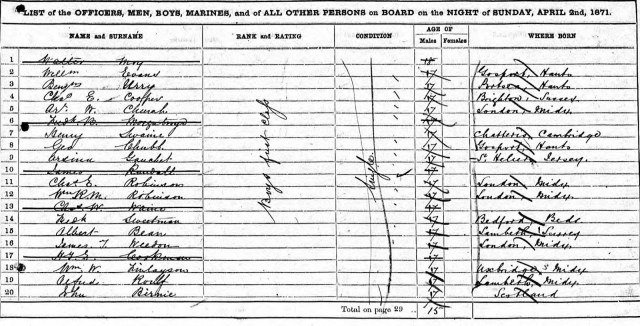 LIST of the OFFICERS, MEN, BOYS, MARINES, and of ALL OTHER PERSONS on BOARD on the NIGHT of SUNDAY, APRIL 2nd, 1871.
NAME and SURNAME RANK and RATING CONDITION AGE OF Males Females WHERE BORN
Boys first Class
Single
1 Walter May 18
2 Willm Evans 17 Gosport, Hants
3 Benjn Urry 17 Portsea, Hants
4 Chas E. Cooper 17 Brighton, Sussex
5 W. Church 17 London, Midex
6 Fredk B.
7 Henry Swaine 17 Chatteris, Cambridge
8 Geo Chubb 17 Gosport, Hants
9 Gauchet 17 St. Heliers, Jersey
10 James Kimball 17
11 Chas E. Robinson 17 London, Midex
12 Wm R.M. Robinson 17 London, Midex
13 Chas W. Waine 17
14 Fredk Sweetman 17 Bedford, Beds
15 Albert Bean 17 Lambeth, Surrey
16 James T. Weedon 17 London, Midex
17 Cookman
18 Wm W. Finlayson 17 Uxbridge, Midex
19 Alfred Roult 17 Lambeth, Midex
20 John Birnie 17 Scotland
Total on page 29 15